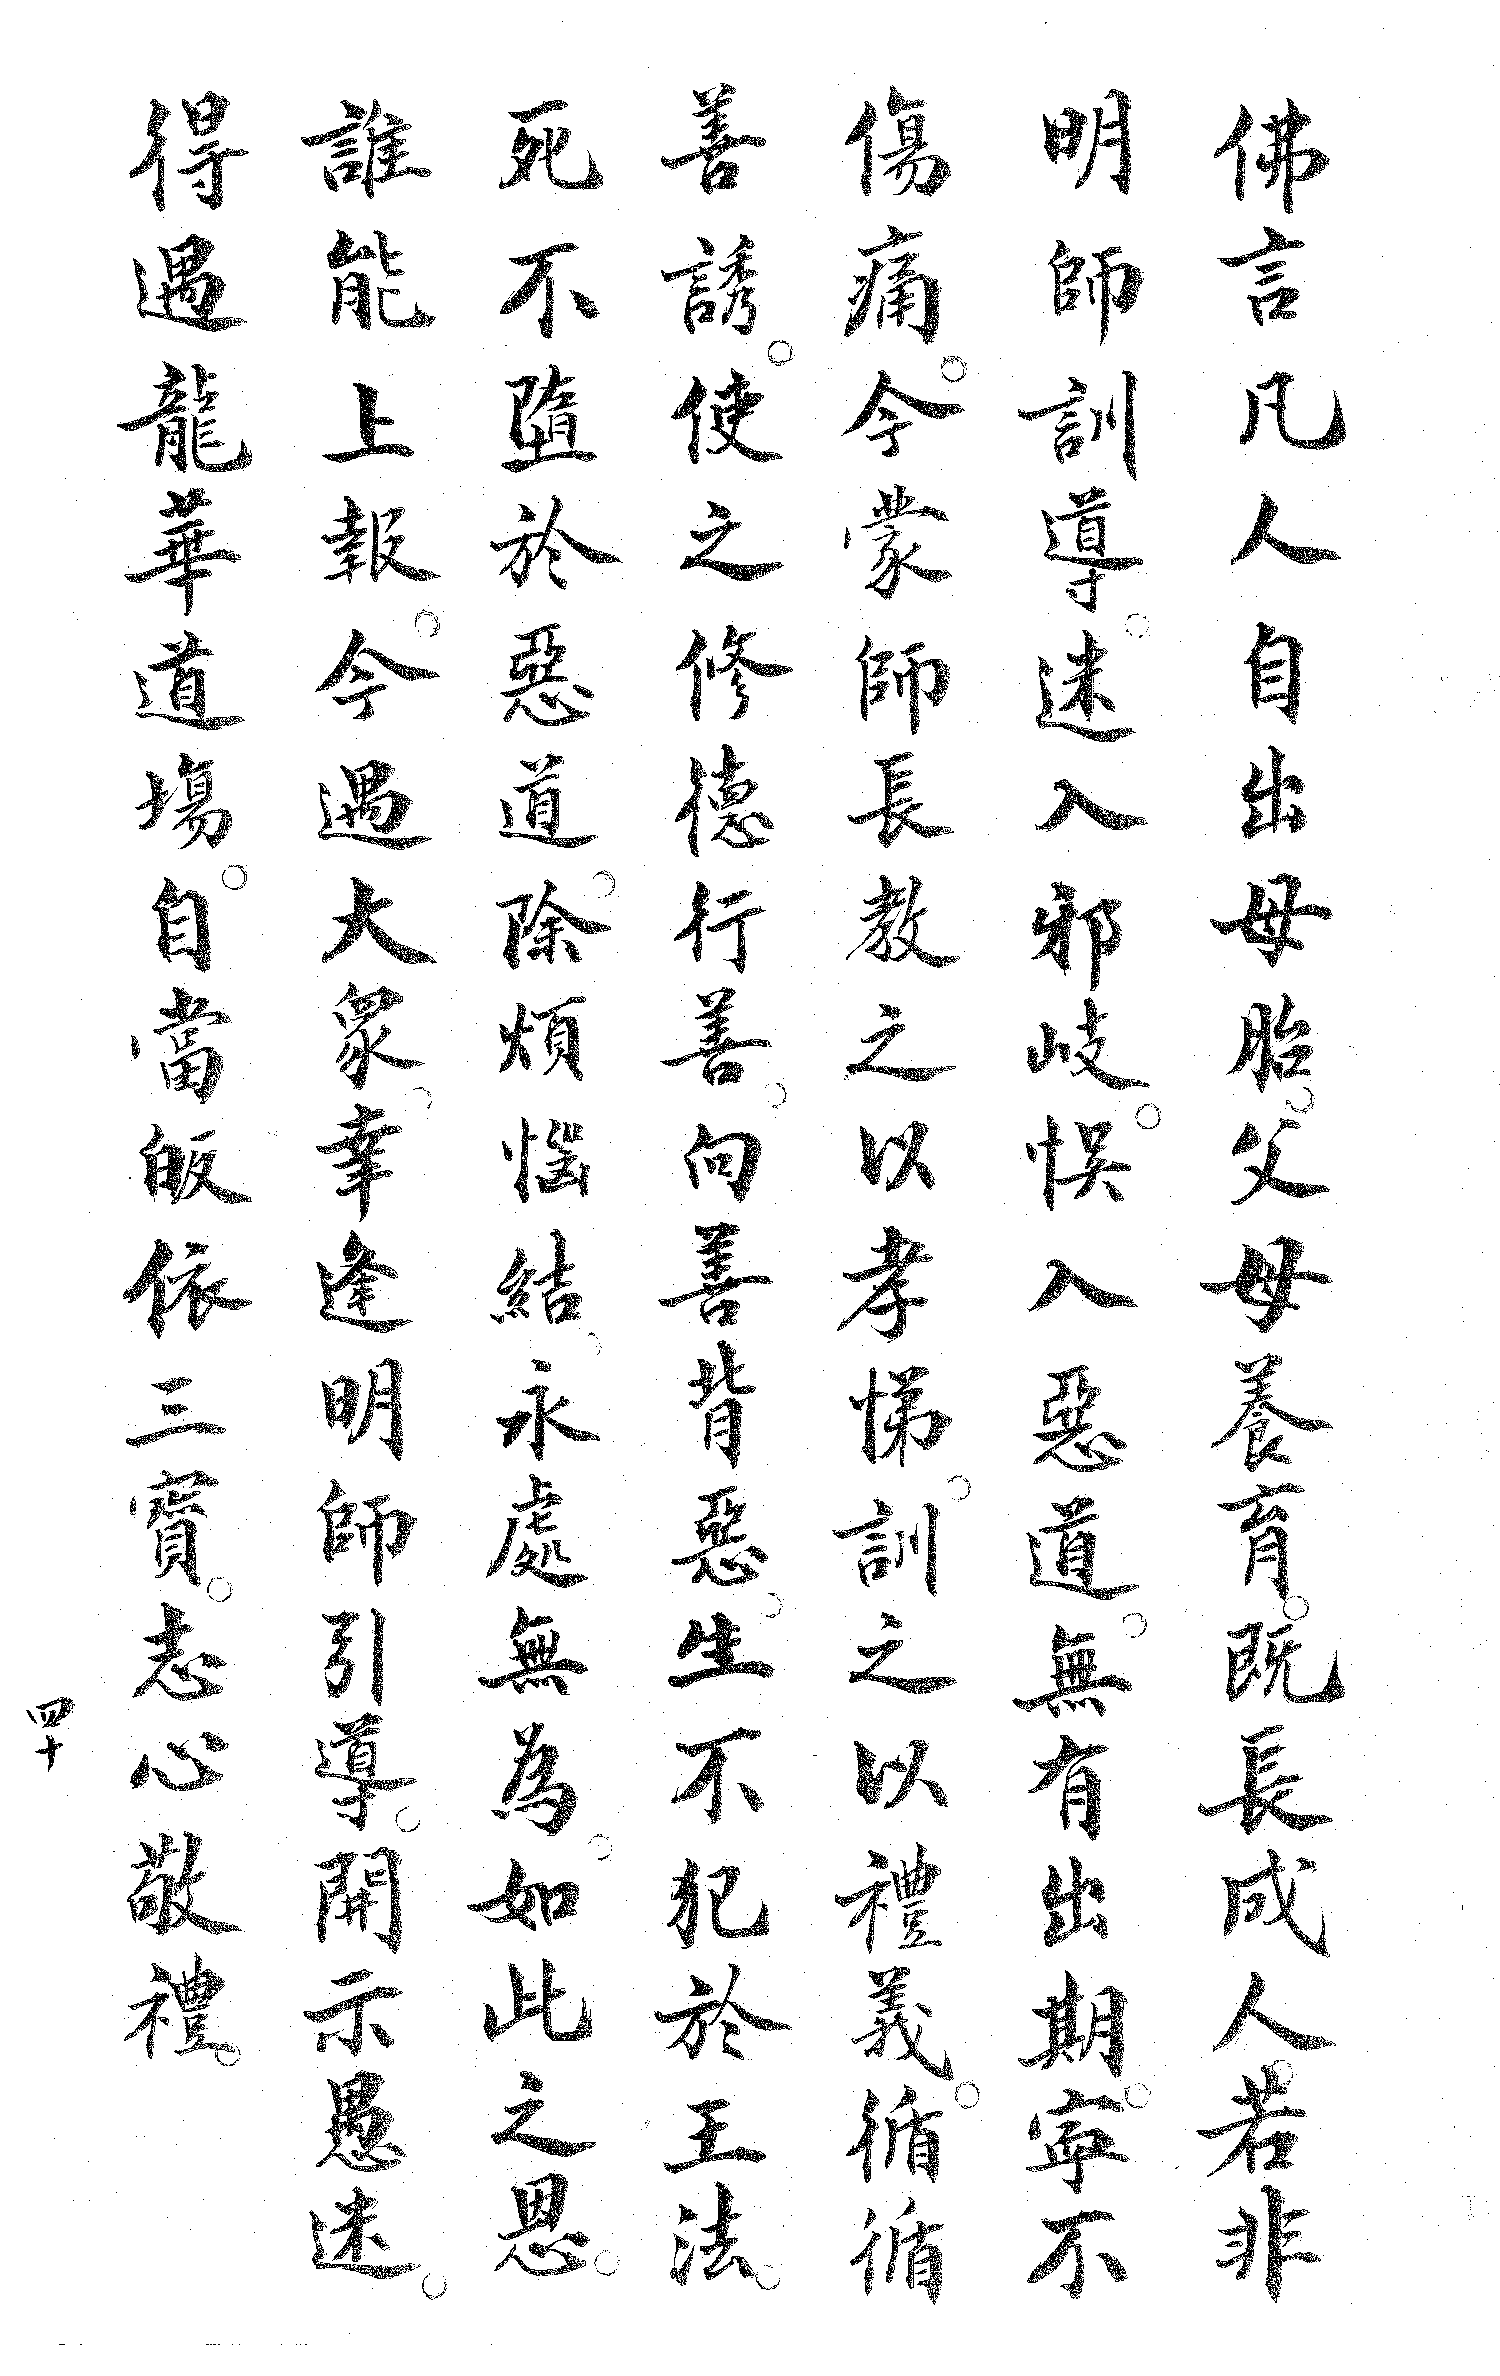 佛言凡人自出母胎。父母養育。既長成人。若非
明師訓導。迷入邪岐。悞入惡道。無有出期。寧不
傷痛。今蒙師長教之以孝悌。訓之以禮義。循循
善誘。使之修德行善。向善背惡。生不犯於王法。
死不墮於惡道。除煩惱結。永處無為。如此之恩。
誰能上報。今遇大眾。幸逢明師引導。開示愚迷。
得遇龍華道場。自當皈依三寶。志心敬禮。
四十